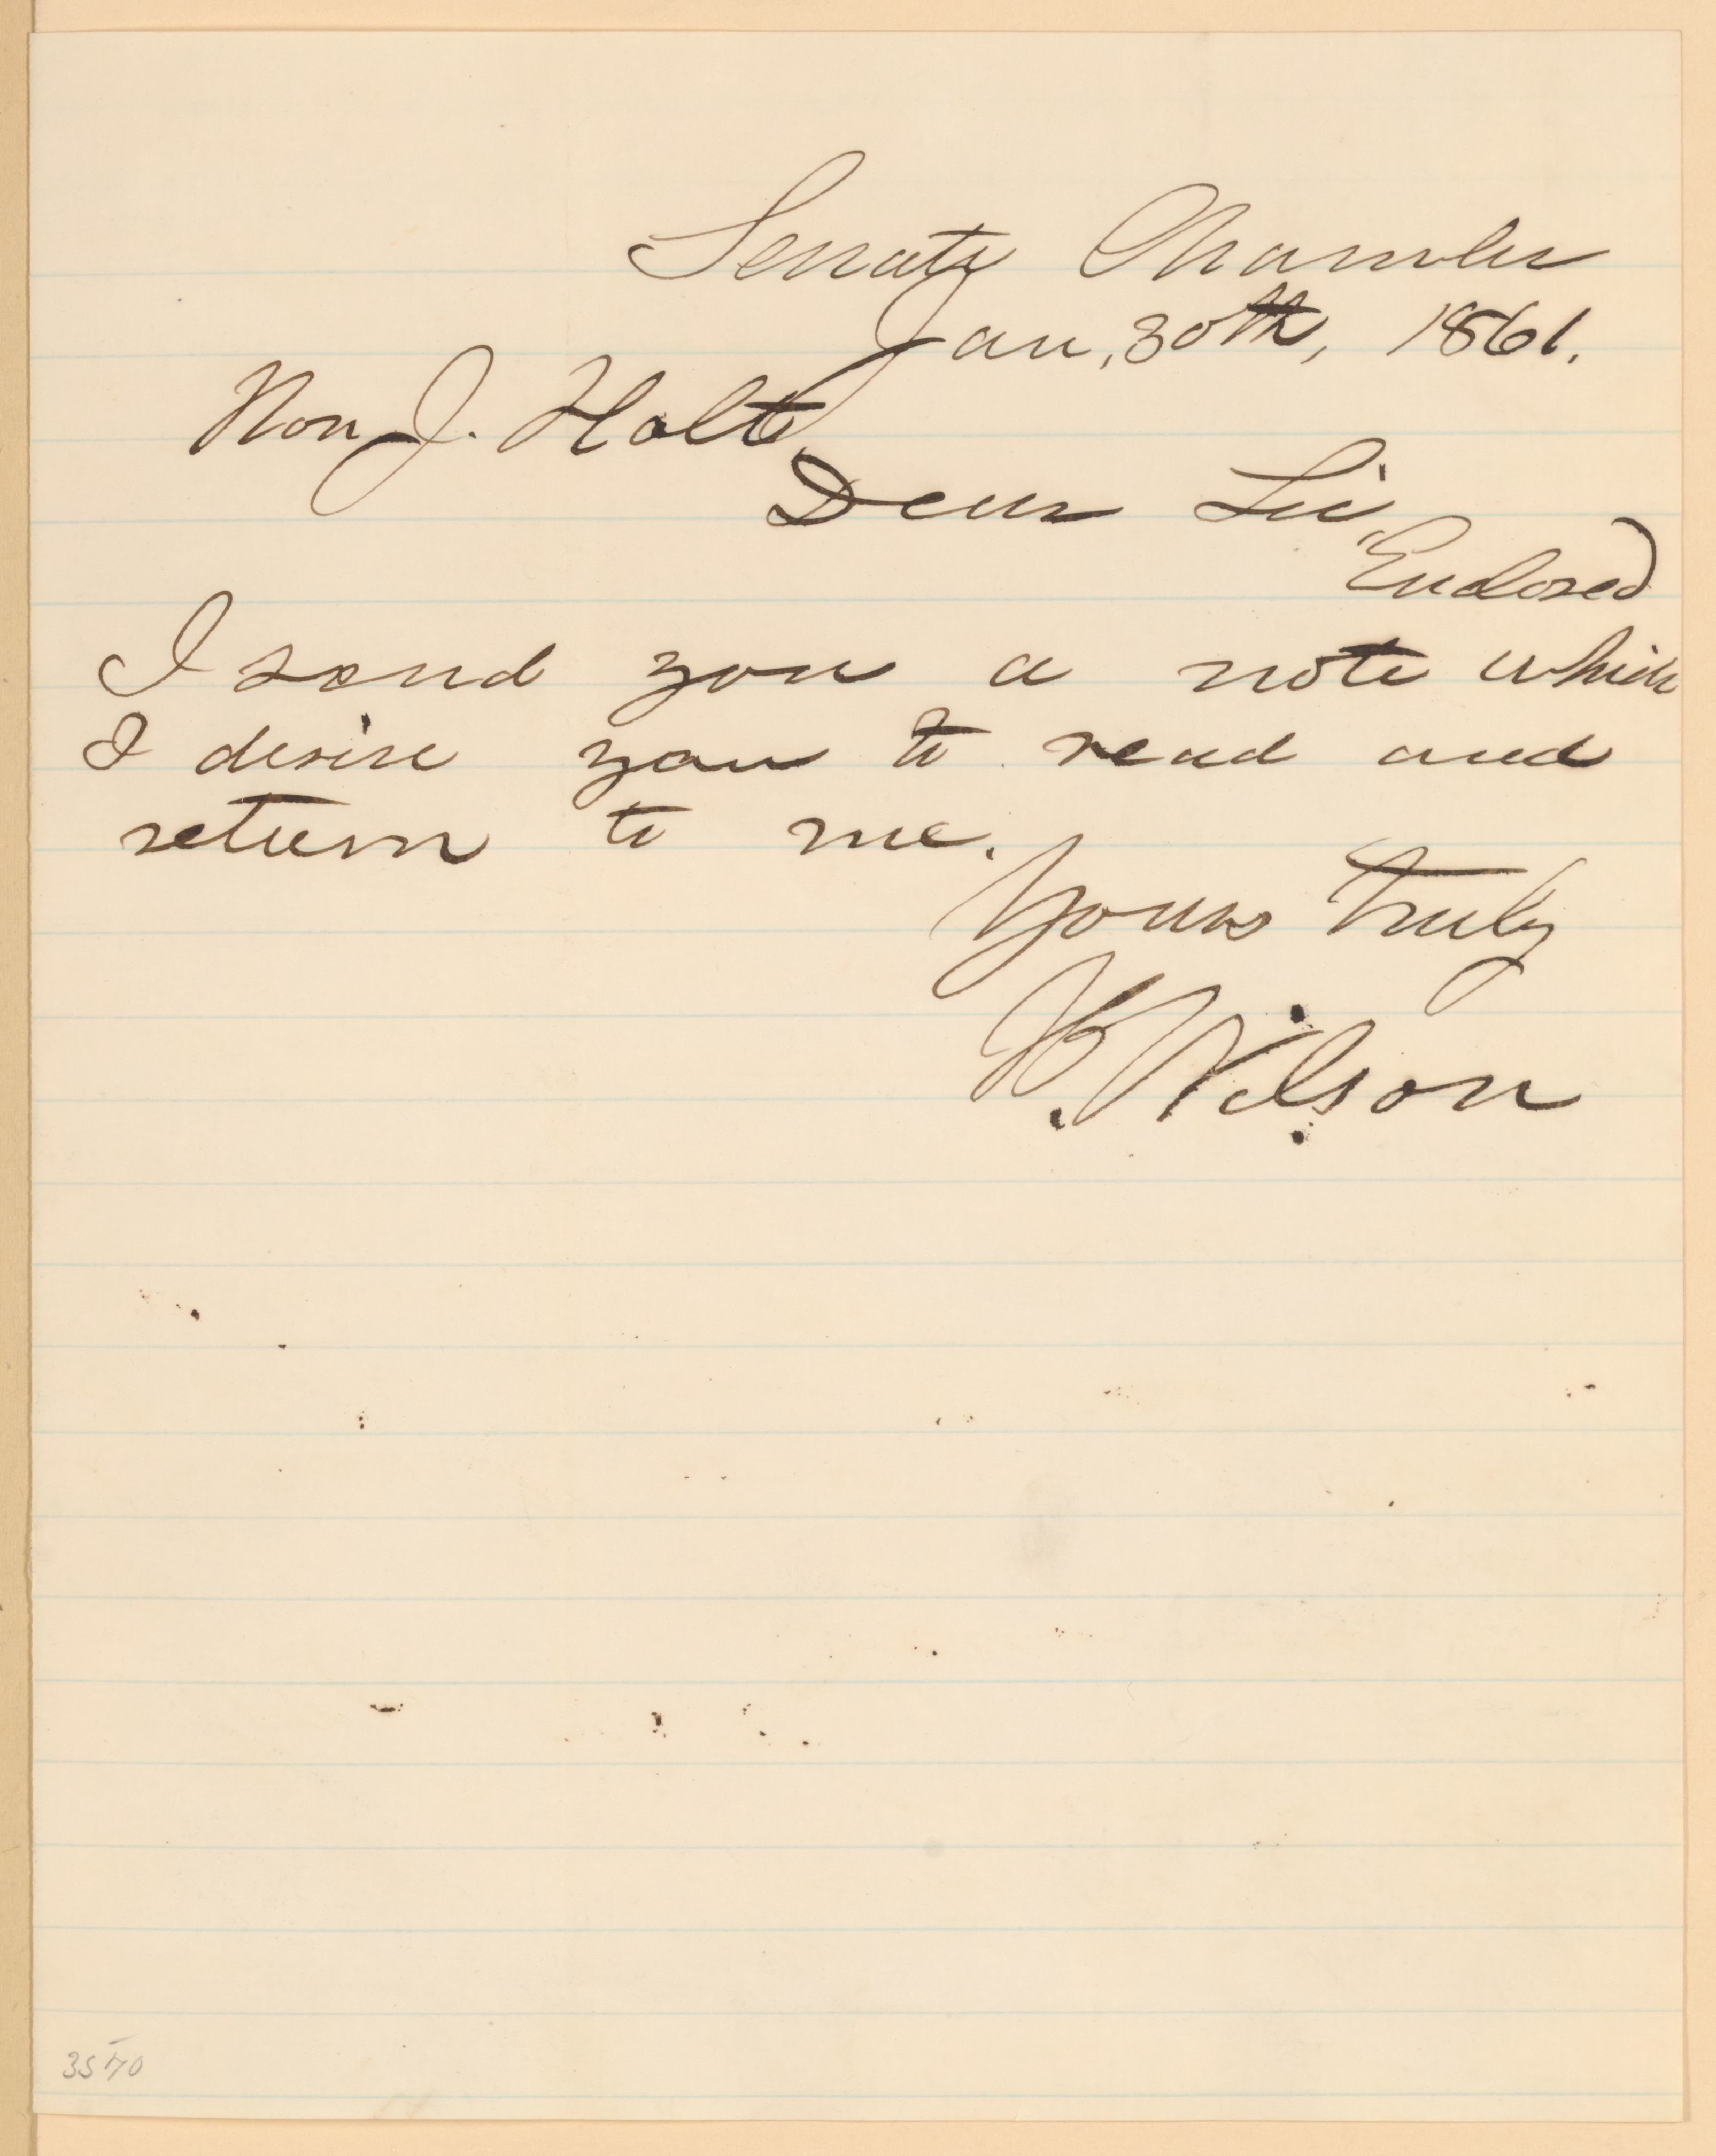 Senate Chamber
Jan, 30th, 1861.
Hon J. Holt,
Dear Sir,
Enclosed
I send you a note which
I desire you to read and
return to me.
Yours truly
H. Wilson
3570